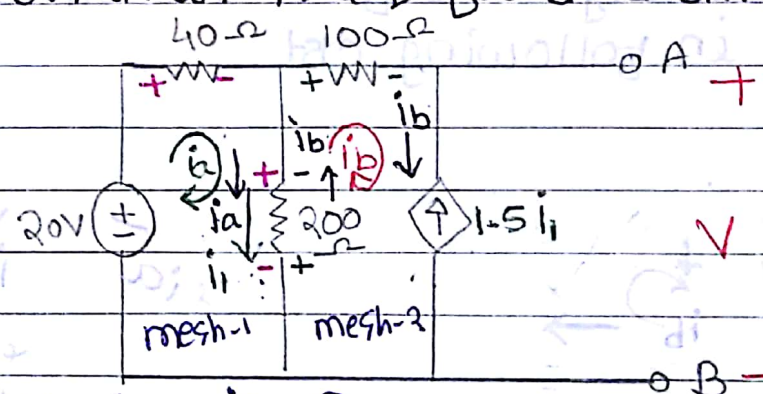 40Ω 100Ω
+ - + - A +
ib ib
ia + - ib
20V + - ia 200 Ω 1.5 i₁ V
i₁ - +
mesh-1 mesh-2
B -